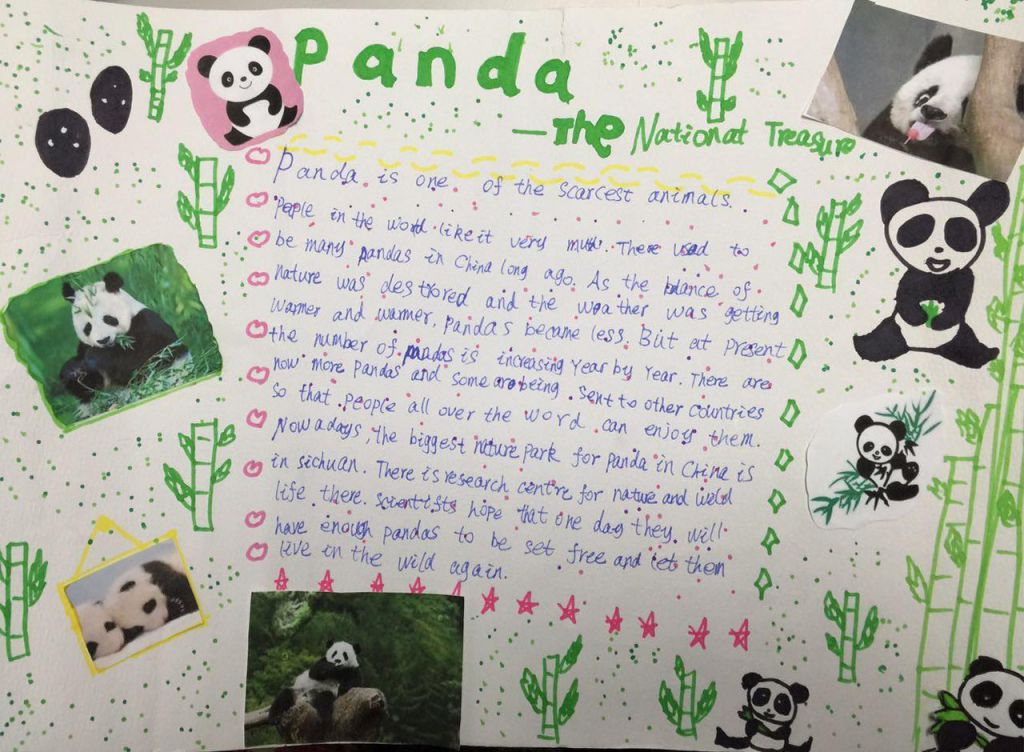 Panda
—The National Treasure
Panda is one of the scarcest animals.
People in the world like it very much. There used to
be many pandas in China long ago. As the blance of
nature was destroyed and the weather was getting
warmer and warmer, pandas became less. But at present
the number of pandas is increasing year by year. There are
now more pandas and some are being sent to other countries
so that people all over the word can enjoy them.
Nowadays, the biggest nature park for panda in China is
in sichuan. There is research centre for nature and wild
life there. Scientists hope that one day they will
have enough pandas to be set free and let them
live in the wild again.